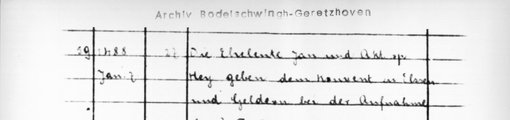 Archiv Bodelschwingh-Geretzhoven
29 1488 27 Die Eheleute Jan und
Jan. 7 Hey geben dem Konvent in Essen
und Geldern bei der Aufnahme